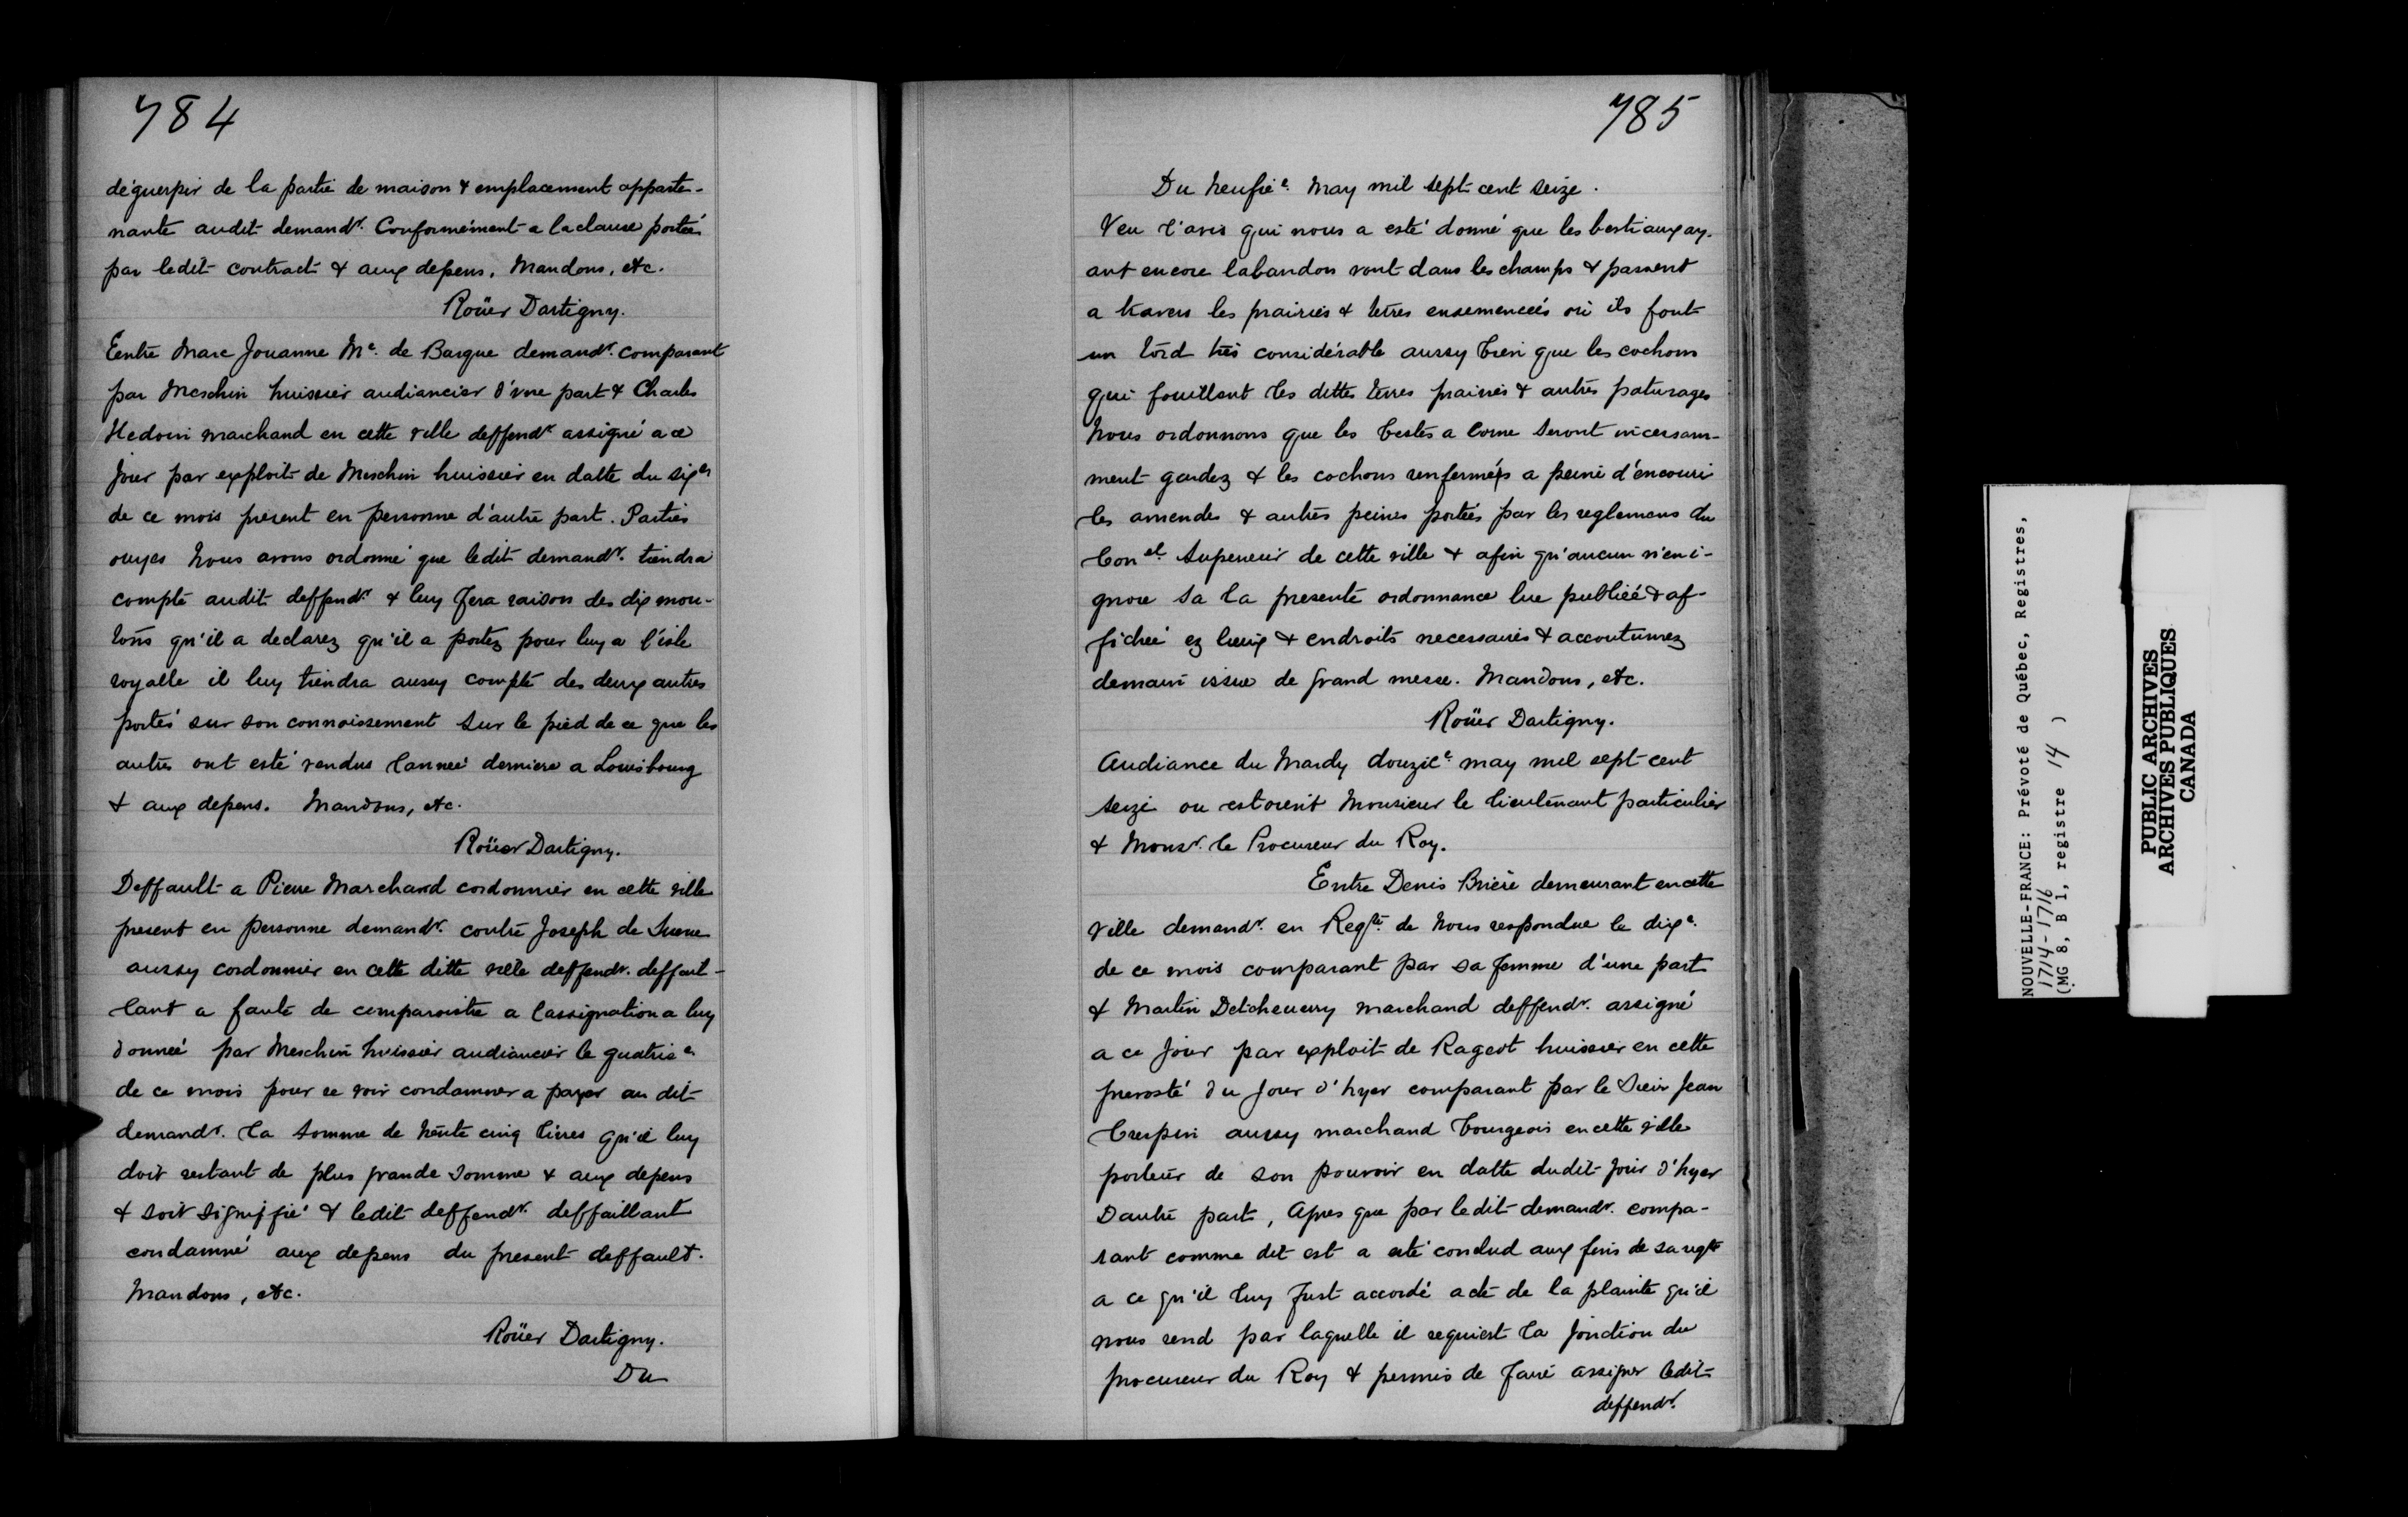 784
déguerpir de la partie de maison & emplacement apparte-
nante audit demandr. Conformément a la clause portée
par ledit contract & aux depens. Mandons, etc.
Roüer Dartigny.
Entre Marc Jouanne Me. de Barque demandr. comparant
par Meschin huissier audiancier d'vne part & Charles
Hedouin marchand en cette ville deffendr assigné a ce
Jour par exploit de Meschin huissier en datte du sixe
de ce mois présent en personne d'autre part. Parties
ouyes Nous avons ordonné que ledit demandr. tiendra
compte audit deffendr. & luy fera raison des dix mou-
tons qu'il a declarez qu'il a portez pour luy a l'isle
royalle il luy tiendra aussy compte des deux autres
portés sur son connoissement sur le pied de ce que les
autres ont esté vendus lannée derniere a Louisbourg
& aux depens. Mandons, etc.
Roüer Dartigny.
Deffault a Pierre Marchand cordonnier en cette ville
present en personne demandr. contre Joseph de
aussy cordonnier en cette ditte ville deffendr. deffail-
lant a faute de comparoistre a lassignation a luy
donnée par Meschin huissier audiancier le quatrie.
de ce mois pour se voir condamner a payer au dit
demandr. la somme de trente cinq livres qu'il luy
doit restant de plus grande somme & aux depens
& soit signiffié & ledit deffendr. deffaillant
condamné aux depens du present deffault.
Mandons, etc.
Roüer Dartigny.
Du
785
Du neufie. May mil sept cent seize.
Veu l'avis qui nous a esté donné que les bestiaux ay-
ant encore labandon vont dans les champs & passent
a travers les prairies & terres ensemencées où ils font
un tord très considérable aussy bien que les cochons
qui fouillent les dittes terres prairies & autres paturages
Nous ordonnons que les bestes a corne seront incessam-
ment gardez & les cochons renfermés a peine d'encourir
les amendes & autres peines portées par les reglemens du
Conel Superieur de cette ville & afin qu'aucun n'en i-
gnore sa la presente ordonnance lue publiée & af-
fichée ez lieux & endroits necessaires & accoutumez
demain issue de grand messe. Mandons, etc.
Roüer Dartigny.
Audiance du Mardy douzie. may mil sept cent
seize ou estoient Monsieur le lieutenant particulier
& Monsr. le Procureur du Roy.
Entre Denis Brière demeurant en cette
ville demandr. en Reqte. de Nous respondue le dixe.
de ce mois comparant par sa femme d'une part
& Martin Detcheverry marchand deffendr. assigné
a ce jour par exploit de Rageot huissier en cette
prevosté du Jour d'hyer comparant par le Sieur Jean
Crespin aussy marchand bourgeois en cette ville
porteur de son pouvoir en datte dudit jour d'hyer
Dautre part, Apres que par ledit demandr. compa-
rant comme dit est a esté conclud aux fins de sa reqte
a ce qu'il luy fust accordé acte de la plainte qu'il
nous rend par laquelle il requiert la jonction du
procureur du Roy & permis de faire assigner ledit
deffendr.
NOUVELLE-FRANCE: Prévoté de Québec, Registres,
1714-1716
(MG 8, B 1, registre 14 )
PUBLIC ARCHIVES
ARCHIVES PUBLIQUES
CANADA